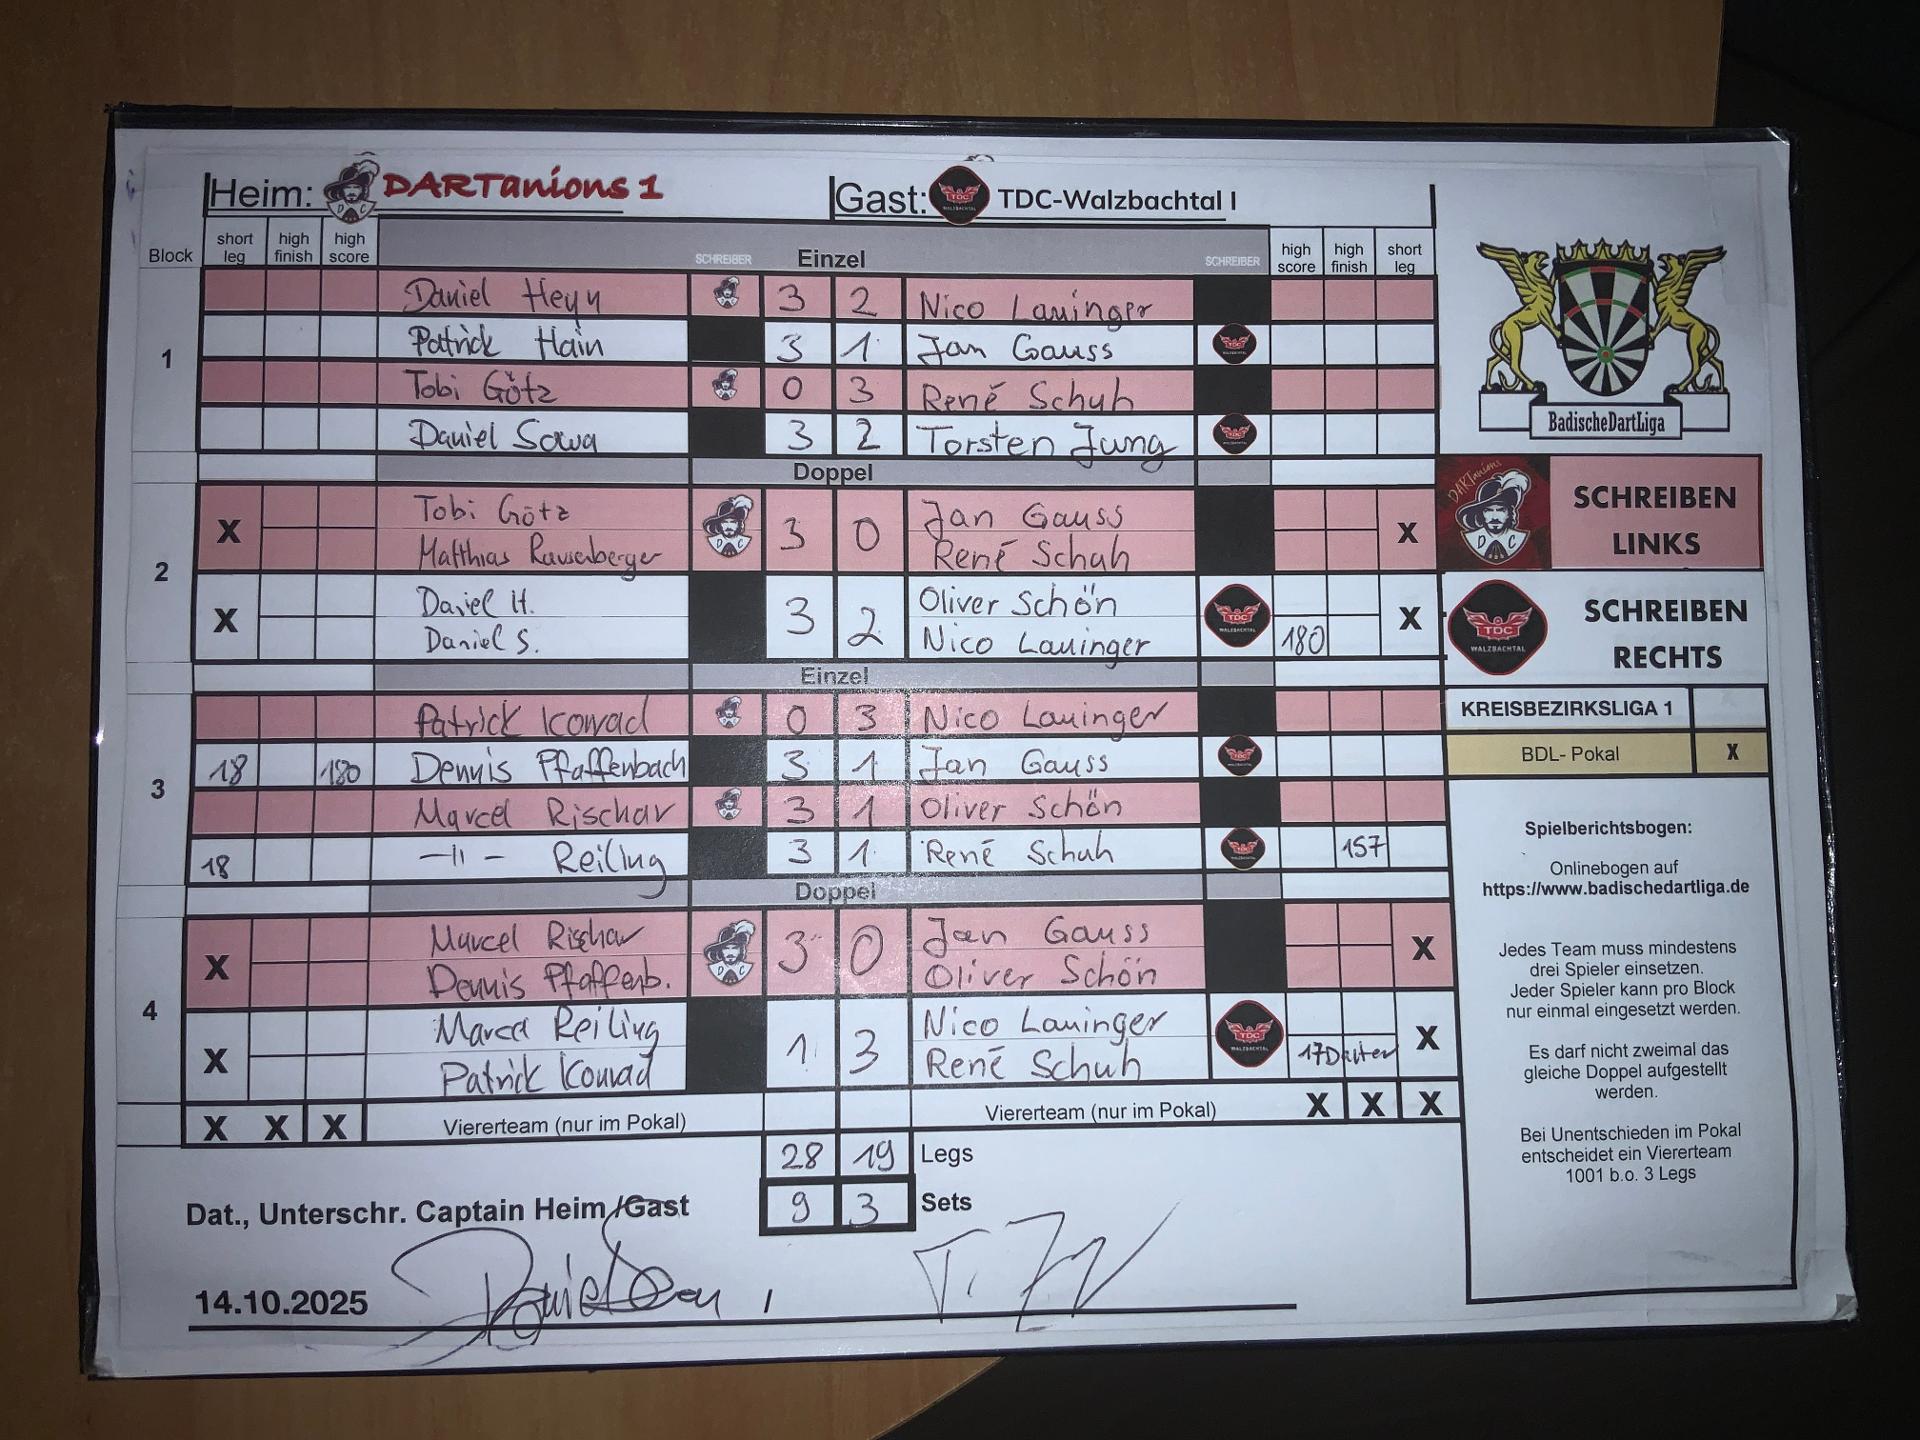 Heim: DARTanions 1 Gast: TDC-Walzbachtal I
Block short leg high finish high score SCHREIBER Einzel SCHREIBER high score high finish short leg
1
Daniel Heyn 3 2 Nico Lauinger
Patrick Hain 3 1 Jan Gauss
Tobi Götz 0 3 René Schuh
Daniel Sowa 3 2 Torsten Jung
BadischeDartLiga
Doppel
2
X Tobi Götz 3 0 Jan Gauss X
Matthias Rausenberger René Schuh
X Daniel H. 3 2 Oliver Schön X
Daniel S. Nico Lauinger 180
DARTanions
SCHREIBEN
LINKS
TDC
WALZBACHTAL
SCHREIBEN
RECHTS
Einzel
3
Patrick Konrad 0 3 Nico Lauinger
18 180 Dennis Pfaffenbach 3 1 Jan Gauss
Marcel Rischar 3 1 Oliver Schön
18 -11- Reiling 3 1 René Schuh 157
KREISBEZIRKSLIGA 1
BDL- Pokal X
Doppel
4
X Marcel Rischar 3 0 Jan Gauss X
Dennis Pfaffenb. Oliver Schön
X Marcel Reiling 1 3 Nico Lauinger X
Patrick Konrad René Schuh 17Darter
X X X Viererteam (nur im Pokal) Viererteam (nur im Pokal) X X X
28 19 Legs
9 3 Sets
Dat., Unterschr. Captain Heim /Gast
14.10.2025
Spielberichtsbogen:
Onlinebogen auf
https://www.badischedartliga.de
Jedes Team muss mindestens
drei Spieler einsetzen.
Jeder Spieler kann pro Block
nur einmal eingesetzt werden.
Es darf nicht zweimal das
gleiche Doppel aufgestellt
werden.
Bei Unentschieden im Pokal
entscheidet ein Viererteam
1001 b.o. 3 Legs